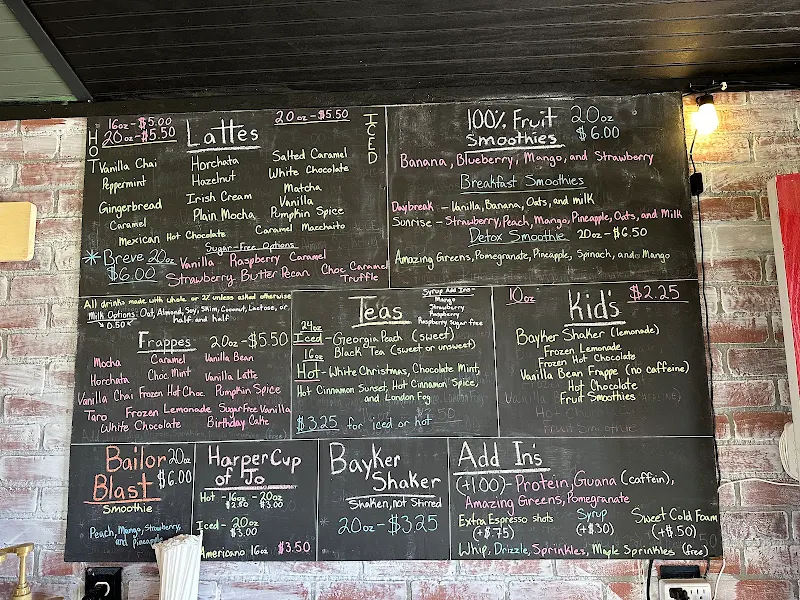 HOT
16oz - $5.00
20oz - $5.50
Lattes
20oz - $5.50
ICED
Vanilla Chai
Peppermint
Gingerbread
Caramel
Mexican Hot Chocolate
Horchata
Hazelnut
Irish Cream
Plain Mocha
Salted Caramel
White Chocolate
Matcha
Vanilla
Pumpkin Spice
Caramel Macchaito
Sugar-Free Options
Vanilla Raspberry Caramel
Strawberry Butter Pecan Choc Caramel
Truffle
*Breve 20oz
$6.00
100% Fruit
Smoothies
20oz
$6.00
Banana, Blueberry, Mango, and Strawberry
Breakfast Smoothies
Daybreak - Vanilla, Banana, Oats, and milk
Sunrise - Strawberry, Peach, Mango, Pineapple, Oats, and Milk
Detox Smoothie 20oz - $6.50
Amazing Greens, Pomegranate, Pineapple, Spinach, and Mango
All drinks made with whole or 2% unless asked otherwise
Milk Options: Oat, Almond, Soy, Skim, Coconut, Lactose, or
half and half
0.50
Frappes 20oz - $5.50
Mocha Caramel Vanilla Bean
Horchata Choc Mint Vanilla Latte
Vanilla Chai Frozen Hot Choc. Pumpkin Spice
Taro Frozen Lemonade Sugar Free Vanilla
White Chocolate Birthday Cake
Teas
Syrup Add Ins -
Mango
Strawberry
Raspberry
Raspberry Sugar free
24oz
Iced - Georgia Peach (sweet)
Black Tea (sweet or unsweet)
16oz
Hot - White Christmas, Chocolate Mint,
Hot Cinnamon Sunset, Hot Cinnamon Spice,
and London Fog
$3.25 for iced or hot
10oz
Kid's
$2.25
Bayker Shaker (lemonade)
Frozen Lemonade
Frozen Hot Chocolate
Vanilla Bean Frappe (no caffeine)
Hot Chocolate
Fruit Smoothies
Bailor
Blast
20oz
$6.00
Smoothie
Peach, Mango, Strawberry,
and Pineapple
Harper Cup
of Jo
Hot - 16oz - 20oz
$2.50 $3.00
Iced - 20oz
$3.00
Americano 16oz $3.50
Bayker
Shaker
Shaken, not Stirred
20oz - $3.25
Add In's
(+1.00) - Protein, Guana (caffein),
Amazing Greens, Pomegranate
Extra Espresso shots
(+$.75)
Syrup
(+$.30)
Sweet Cold Foam
(+$.50)
Whip, Drizzle, Sprinkles, Maple Sprinkles (free)